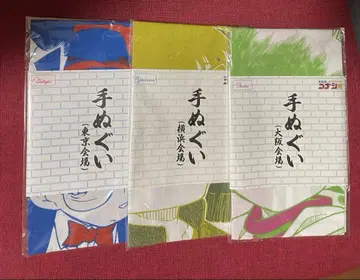 手ぬぐい
(東京会場)
手ぬぐい
(横浜会場)
コナン
手ぬぐい
(大阪会場)